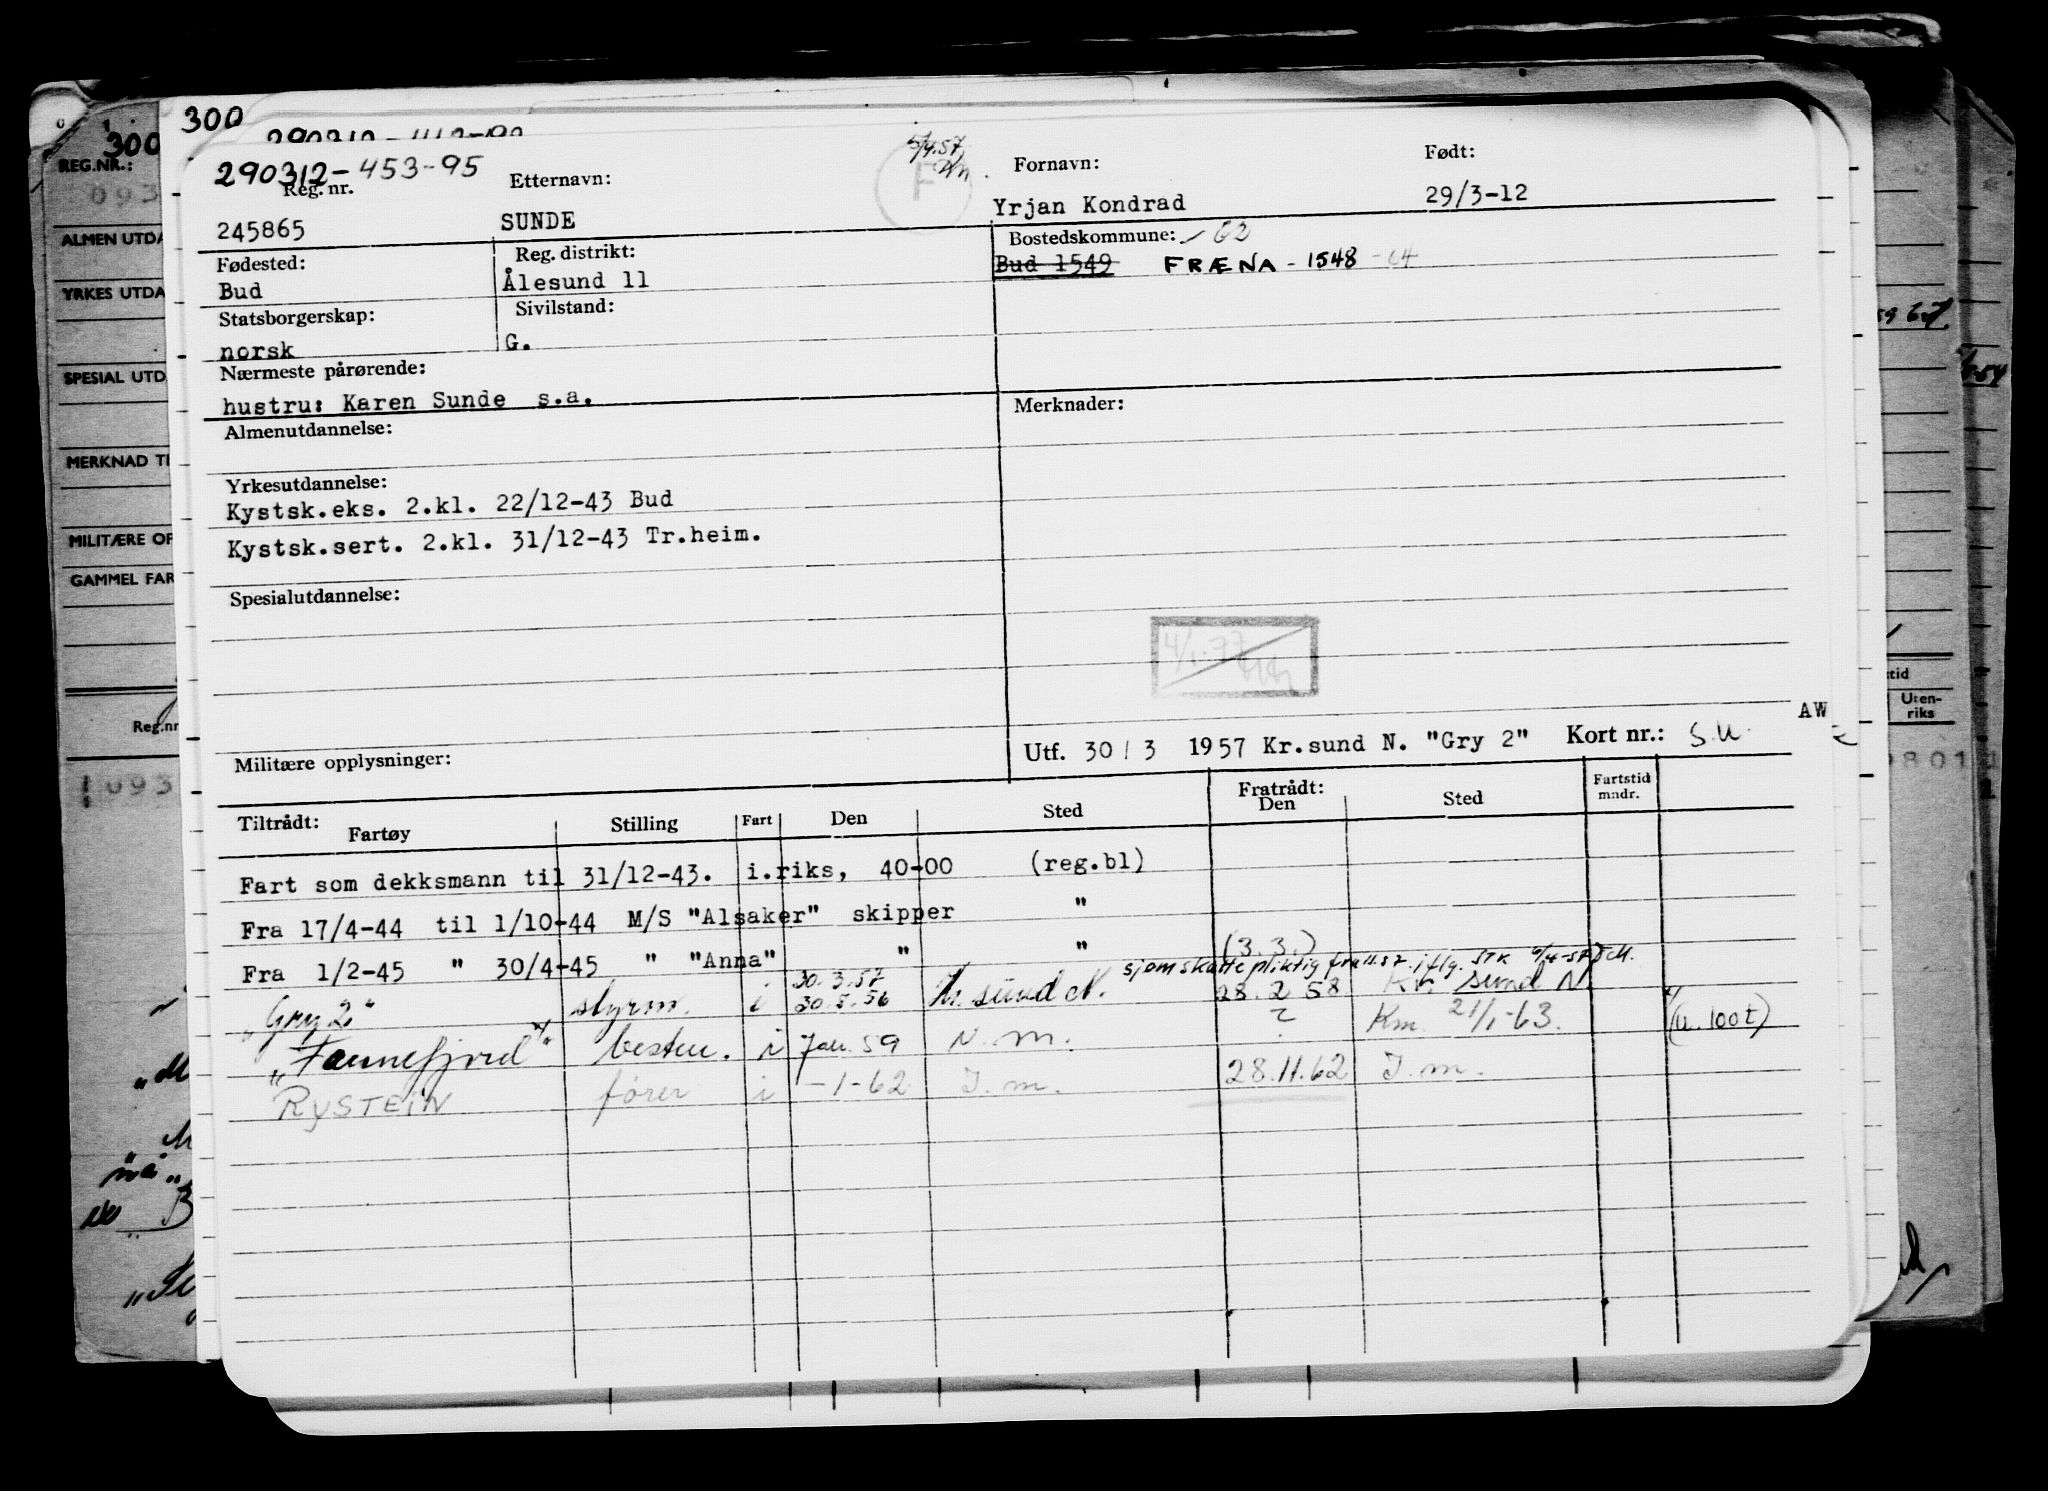 300
300
290312-453-95
Reg. nr.
Etternavn:
Fornavn:
Født:
245865
SUNDE
F
Yrjan Kondrad
29/3-12
Fødested:
Reg. distrikt:
Bostedskommune: - 62
Bud
Ålesund 11
Bud 1549 FRÆNA - 1548 - 64
Statsborgerskap:
Sivilstand:
norsk
G.
Nærmeste pårørende:
hustru: Karen Sunde s.a.
Merknader:
Almenutdannelse:
Yrkesutdannelse:
Kystsk.eks. 2.kl. 22/12-43 Bud
Kystsk.sert. 2.kl. 31/12-43 Tr.heim.
Spesialutdannelse:
4/1-77
Militære opplysninger:
Utf. 30 / 3 1957 Kr.sund N. "Gry 2" Kort nr.: S.U.
AW
Tiltrådt:
Fartøy
Stilling
Fart
Den
Sted
Fratrådt:
Den
Sted
Fartstid
mndr.
Fart som dekksmann til 31/12-43. i.riks, 40-00 (reg.bl)
Fra 17/4-44 til 1/10-44 M/S "Alsaker" skipper "
Fra 1/2-45 " 30/4-45 " "Anna" " "
(3.3.)
sjømskattepliktig fra 11.57. iflg. STK
30.3.57
"Gry 2" styrm. i 30.8.56 Kr. sund N. 28.2 58 Kr. sund N
"Fannefjord" besten. i Jan. 59 N.m. ? Km. 21/1-63. (u. 100t)
RYSTEIN fører i -1-62 I.m. 28.11.62 I.m.
REG.NR.:
093
ALMEN UTDA
YRKES UTDA
SPESIAL UTD
MERKNAD TI
MILITÆRE OP
GAMMEL FAR
Reg.nr
093
tid
Uten-
riks
801